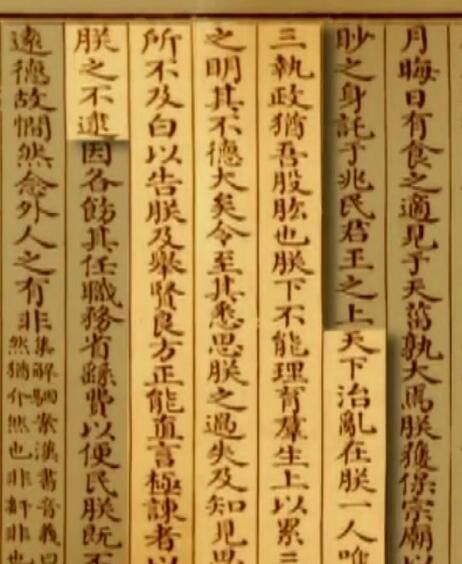 月晦日有食之適見于天菑孰大焉朕獲保宗廟以
眇之身託于兆民君王之上天下治亂在朕一人唯
三執政猶吾股肱也朕下不能理育羣生上以累三
之明其不德大矣令至其悉思朕之過失及知見思
所不及白以告朕及舉賢良方正能直言極諫者以
朕之不逮因各飭其任職務省繇費以便民朕既不
遠德故憪然念外人之有非
集解駰案漢書音義曰
然猶介然也非奸非也